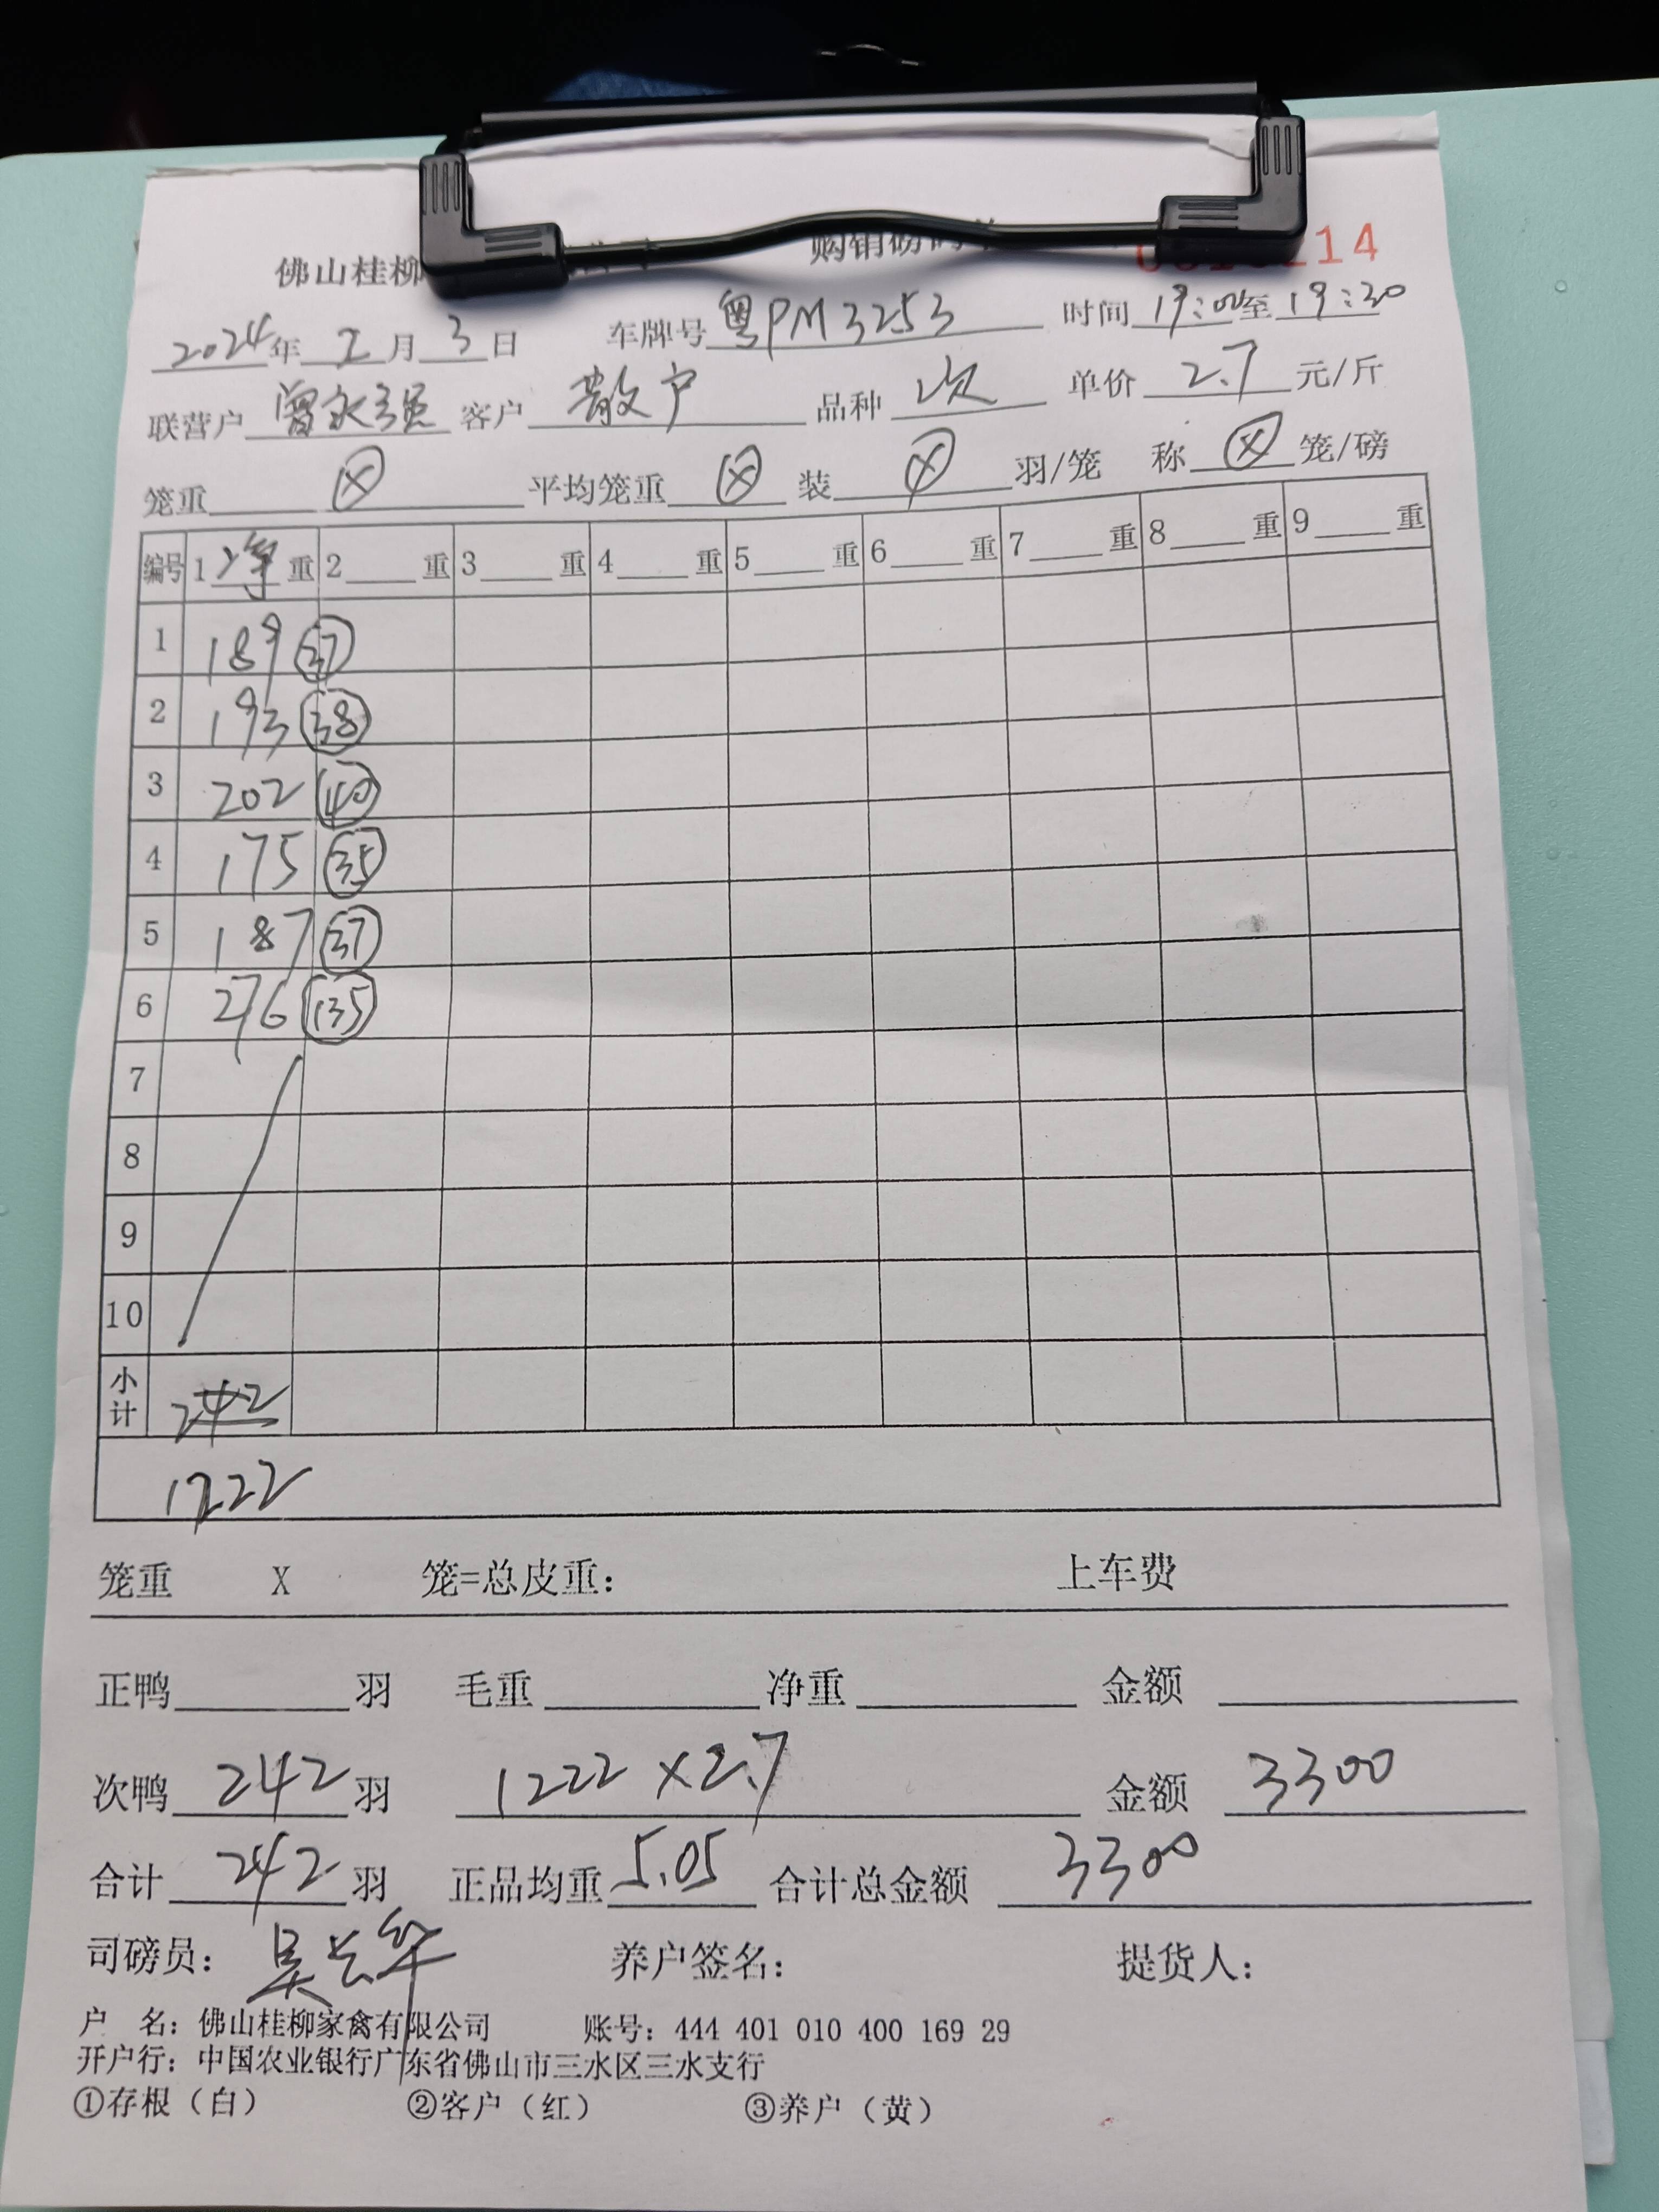 佛山桂柳 购销磅码单 14
2024年 2月 3日 车牌号 粤PM3253 时间 19:00至19:30
联营户 曾永强 客户 散户 品种 次 单价 2.7 元/斤
笼重 ⊗ 平均笼重 ⊗ 装 ⊗ 羽/笼 称 ⊗ 笼/磅
编号 1 净 重 2 重 3 重 4 重 5 重 6 重 7 重 8 重 9 重
1 189 37
2 193 38
3 202 40
4 175 35
5 187 37
6 276 135
7
8
9
10
小计 242
1222
笼重 X 笼=总皮重: 上车费
正鸭 羽 毛重 净重 金额
次鸭 242 羽 1222 × 2.7 金额 3300
合计 242 羽 正品均重 5.05 合计总金额 3300
司磅员: 吴长华 养户签名: 提货人:
户 名: 佛山桂柳家禽有限公司 账号: 444 401 010 400 169 29
开户行: 中国农业银行广东省佛山市三水区三水支行
①存根（白） ②客户（红） ③养户（黄）